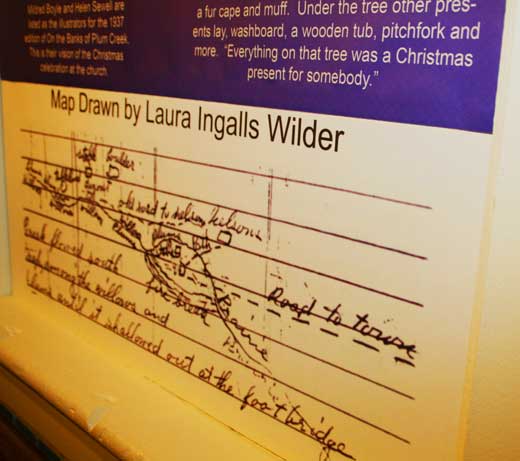 Mildred Boyle and Helen Sewell are
listed as the illustrators for the 1937
edition of On the Banks of Plum Creek.
This is their vision of the Christmas
celebration at the church.
a fur cape and muff. Under the tree other pres-
ents lay, washboard, a wooden tub, pitchfork and
more. "Everything on that tree was a Christmas
present for somebody."
Map Drawn by Laura Ingalls Wilder
stable boulder
old road to nelson
Road to town
creek flowed north
the creek
Prairie
among the willows and
until it shallowed out at the foot bridge